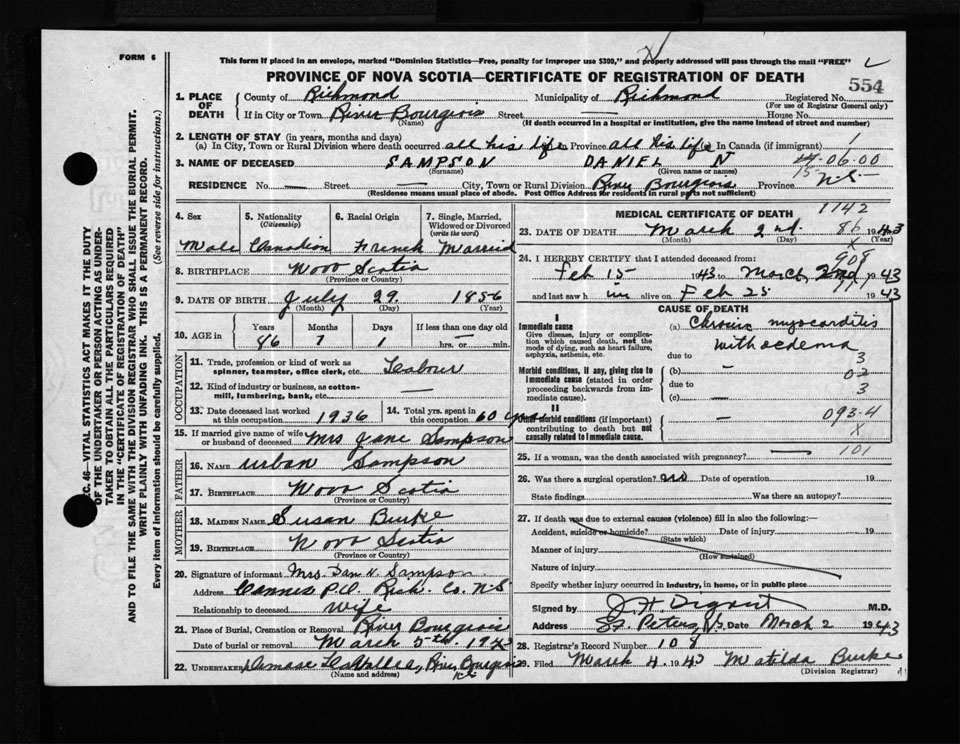 FORM 6
This form if placed in an envelope, marked "Dominion Statistics—Free, penalty for improper use $300," and properly addressed will pass through the mail "FREE"
PROVINCE OF NOVA SCOTIA—CERTIFICATE OF REGISTRATION OF DEATH
554
1. PLACE OF DEATH { County of Richmond Municipality of Richmond Registered No.
(For use of Registrar General only)
If in City or Town River Bourgeois Street House No.
(Name) (If death occurred in a hospital or institution, give the name instead of street and number)
2. LENGTH OF STAY (in years, months and days)
(a) In City, Town or Rural Division where death occurred all his life In Province all his life In Canada (if immigrant)
3. NAME OF DECEASED SAMPSON DANIEL N
(Surname) (Given name or names)
06-00
15
RESIDENCE No. — Street — City, Town or Rural Division River Bourgeois Province N.S.
(Residence means usual place of abode. Post Office Address for residents in rural parts not sufficient)
SEC. 46—VITAL STATISTICS ACT MAKES IT THE DUTY
OF THE UNDERTAKER OR PERSON ACTING AS UNDER-
TAKER TO OBTAIN ALL THE PARTICULARS REQUIRED
IN THE "CERTIFICATE OF REGISTRATION OF DEATH"
AND TO FILE THE SAME WITH THE DIVISION REGISTRAR WHO SHALL ISSUE THE BURIAL PERMIT.
WRITE PLAINLY WITH UNFADING INK. THIS IS A PERMANENT RECORD.
Every item of information should be carefully supplied. (See reverse side for instructions.)
4. Sex 5. Nationality (Citizenship) 6. Racial Origin 7. Single, Married, Widowed or Divorced (write the word)
Male Canadian French Married
8. BIRTHPLACE Nova Scotia
(Province or Country)
9. DATE OF BIRTH July 29 1856
(Month) (Day) (Year)
10. AGE in Years Months Days If less than one day old
86 7 1 hrs. or — min.
OCCUPATION
11. Trade, profession or kind of work as spinner, teamster, office clerk, etc. Labour
12. Kind of industry or business, as cotton-mill, lumbering, bank, etc. —
13. Date deceased last worked at this occupation 1936 14. Total yrs. spent in this occupation 60 years
15. If married give name of wife or husband of deceased Mrs Jane Sampson
FATHER
16. NAME Urban Sampson
17. BIRTHPLACE Nova Scotia
(Province or Country)
MOTHER
18. MAIDEN NAME Susan Burke
19. BIRTHPLACE Nova Scotia
(Province or Country)
20. Signature of informant Mrs. Dan N. Sampson
Address Cannes P.O. Rich. Co. N.S
Relationship to deceased wife
21. Place of Burial, Cremation or Removal River Bourgeois
Date of burial or removal March 5th 1943
22. UNDERTAKER River Bourgeois
(Name and address)
MEDICAL CERTIFICATE OF DEATH 1142
23. DATE OF DEATH March 2nd. 86 1943
(Month) (Day) X (Year)
24. I HEREBY CERTIFY that I attended deceased from: 908
Feb 15 1943 to March 2nd 1943
and last saw him alive on Feb 25 1943
CAUSE OF DEATH
I
Immediate cause
Give disease, injury or complication which caused death, not the mode of dying, such as heart failure, asphyxia, asthenia, etc.
(a) Chronic myocarditis
with oedema
due to 3
Morbid conditions, if any, giving rise to immediate cause (stated in order proceeding backwards from immediate cause).
(b) —
due to 3
(c) —
II
Other morbid conditions (if important) contributing to death but not causally related to immediate cause.
— 093-4
X
25. If a woman, was the death associated with pregnancy? — 101
26. Was there a surgical operation? no Date of operation 19
State findings Was there an autopsy?
27. If death was due to external causes (violence) fill in also the following:—
Accident, suicide or homicide? Date of injury 19
(State which)
Manner of injury
(How sustained)
Nature of injury
Specify whether injury occurred in industry, in home, or in public place
Signed by M.D.
Address St Peters N.S. Date March 2 1943
28. Registrar's Record Number 108
29. Filed March 4 1943 Matilda Burke
(Division Registrar)